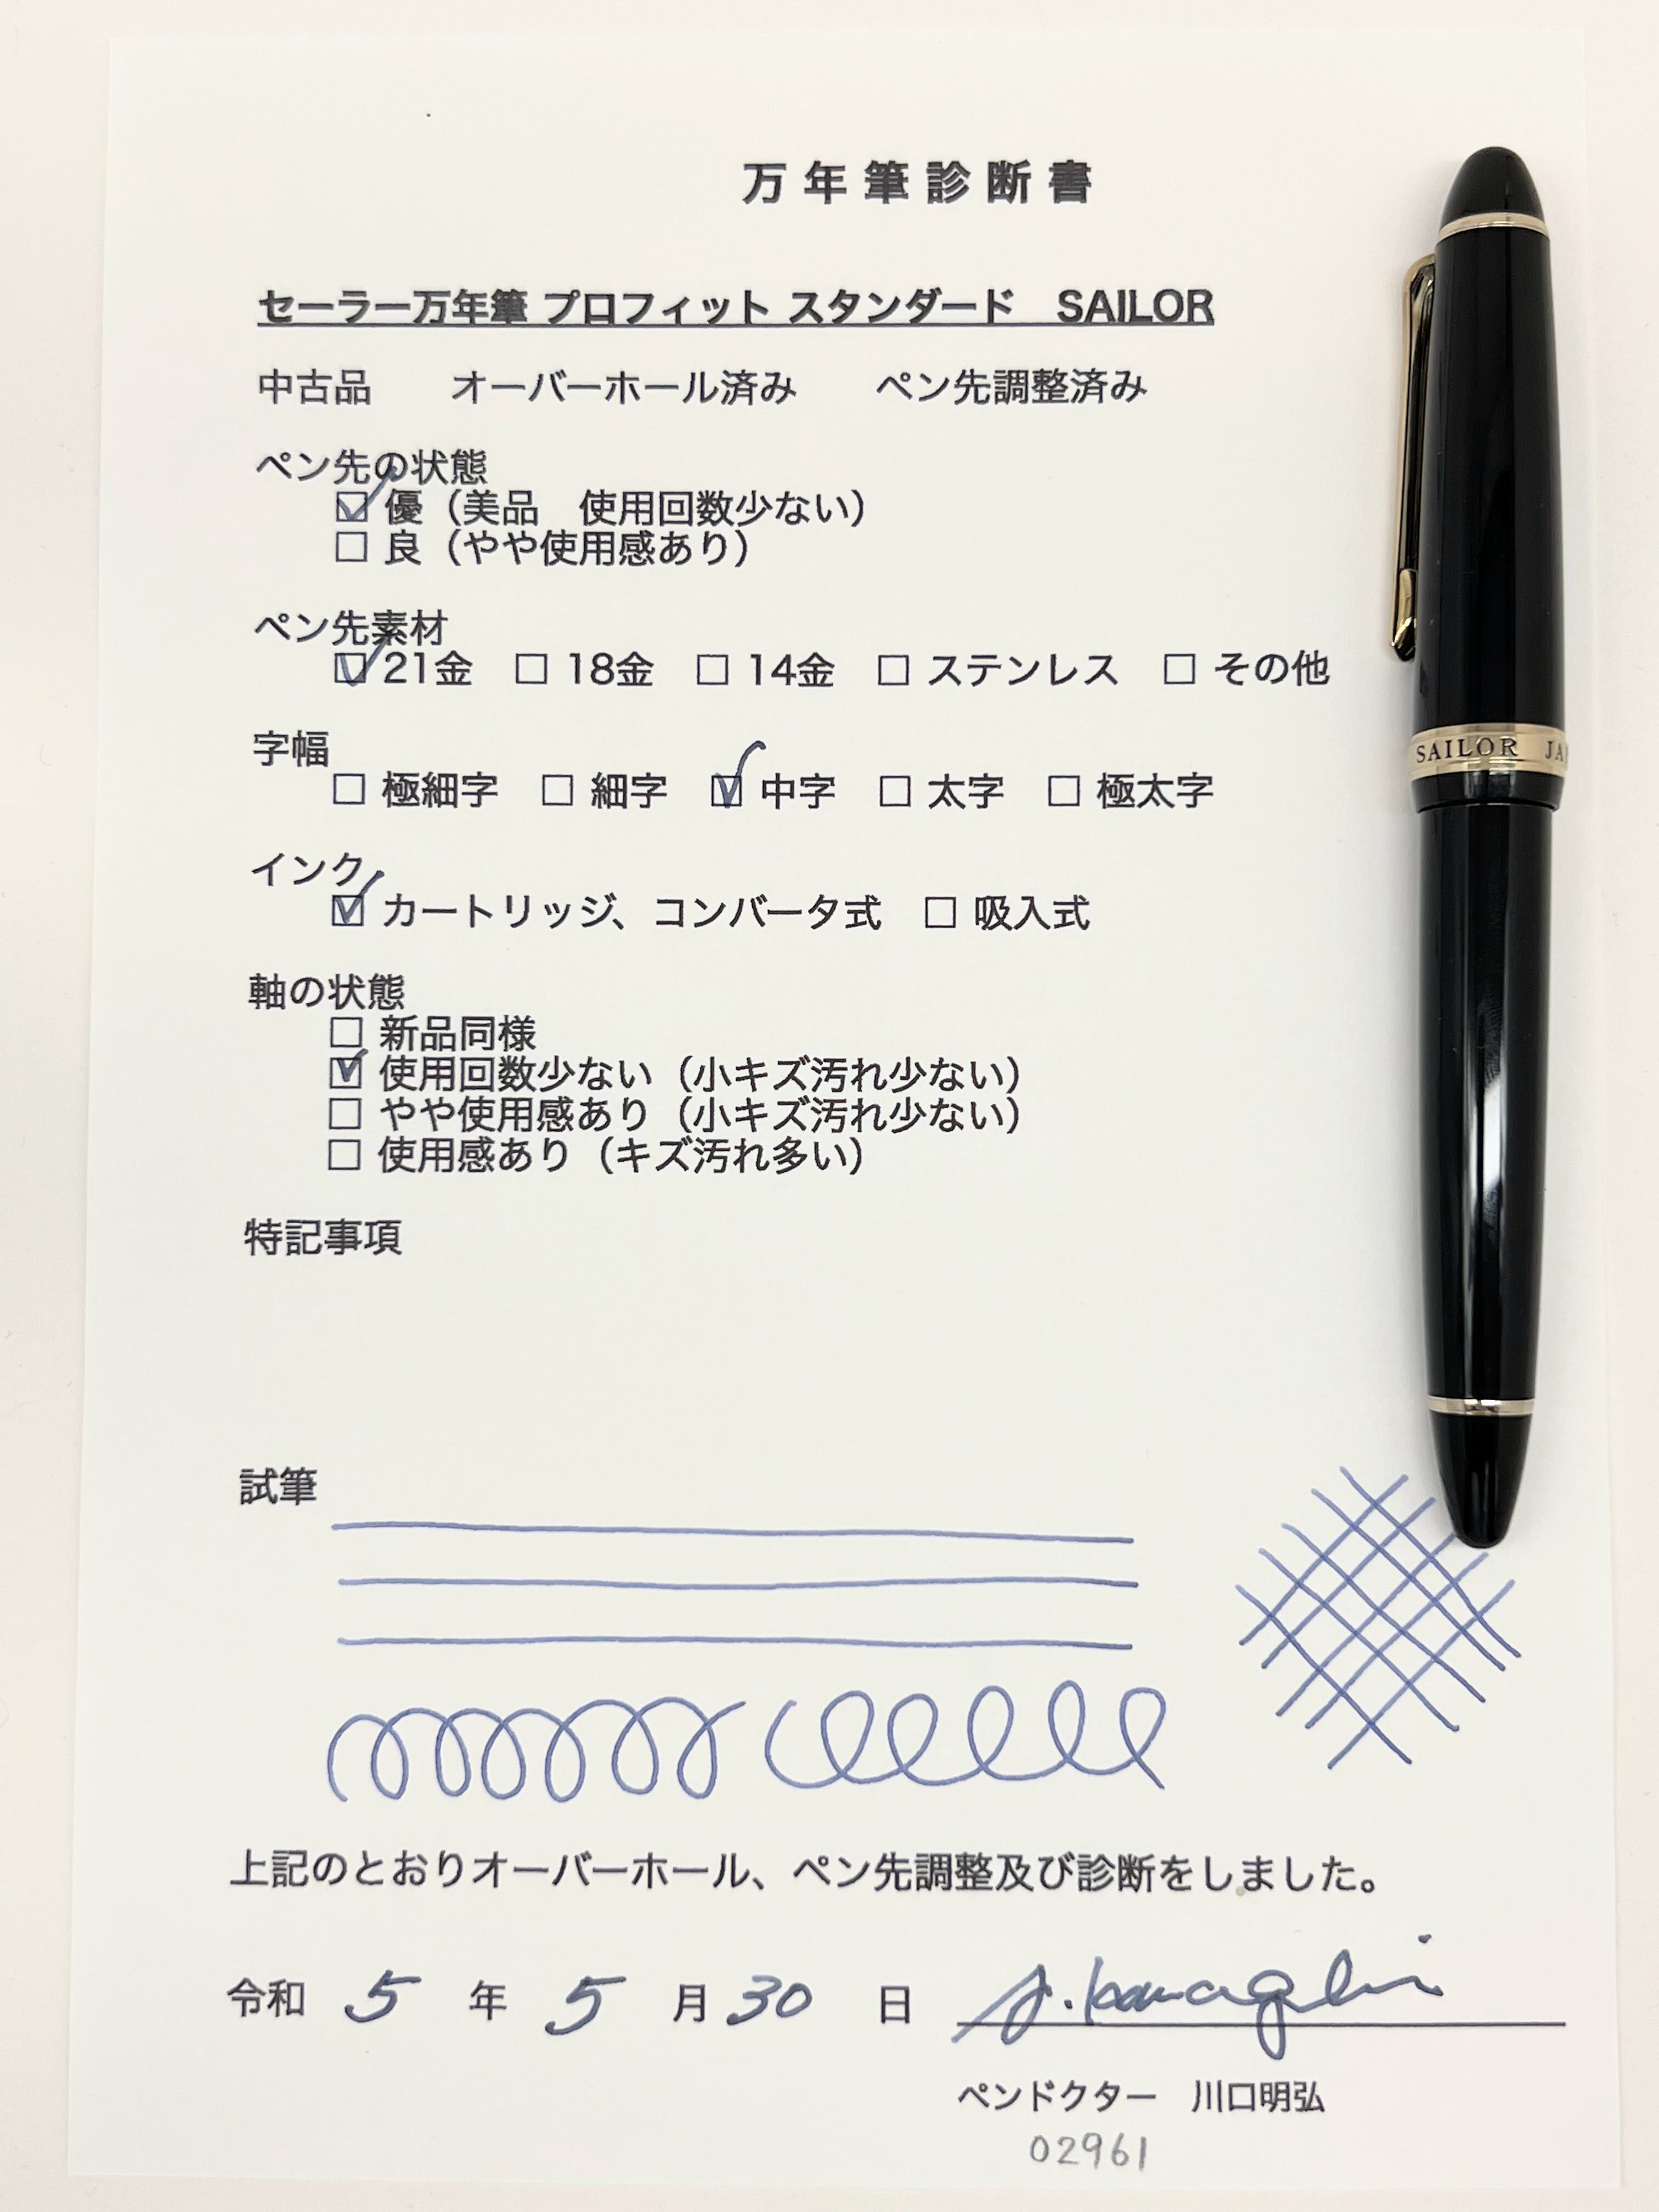 万年筆診断書
セーラー万年筆 プロフィット スタンダード　SAILOR
中古品　　オーバーホール済み　　ペン先調整済み
ペン先の状態
☑ 優（美品　使用回数少ない）
□ 良（やや使用感あり）
ペン先素材
☑ 21金　□ 18金　□ 14金　□ ステンレス　□ その他
字幅
□ 極細字　□ 細字　☑ 中字　□ 太字　□ 極太字
インク
☑ カートリッジ、コンバータ式　□ 吸入式
軸の状態
□ 新品同様
☑ 使用回数少ない（小キズ汚れ少ない）
□ やや使用感あり（小キズ汚れ少ない）
□ 使用感あり（キズ汚れ多い）
特記事項
試筆
上記のとおりオーバーホール、ペン先調整及び診断をしました。
令和 5 年 5 月 30 日
ペンドクター　川口明弘
02961
SAILOR JA